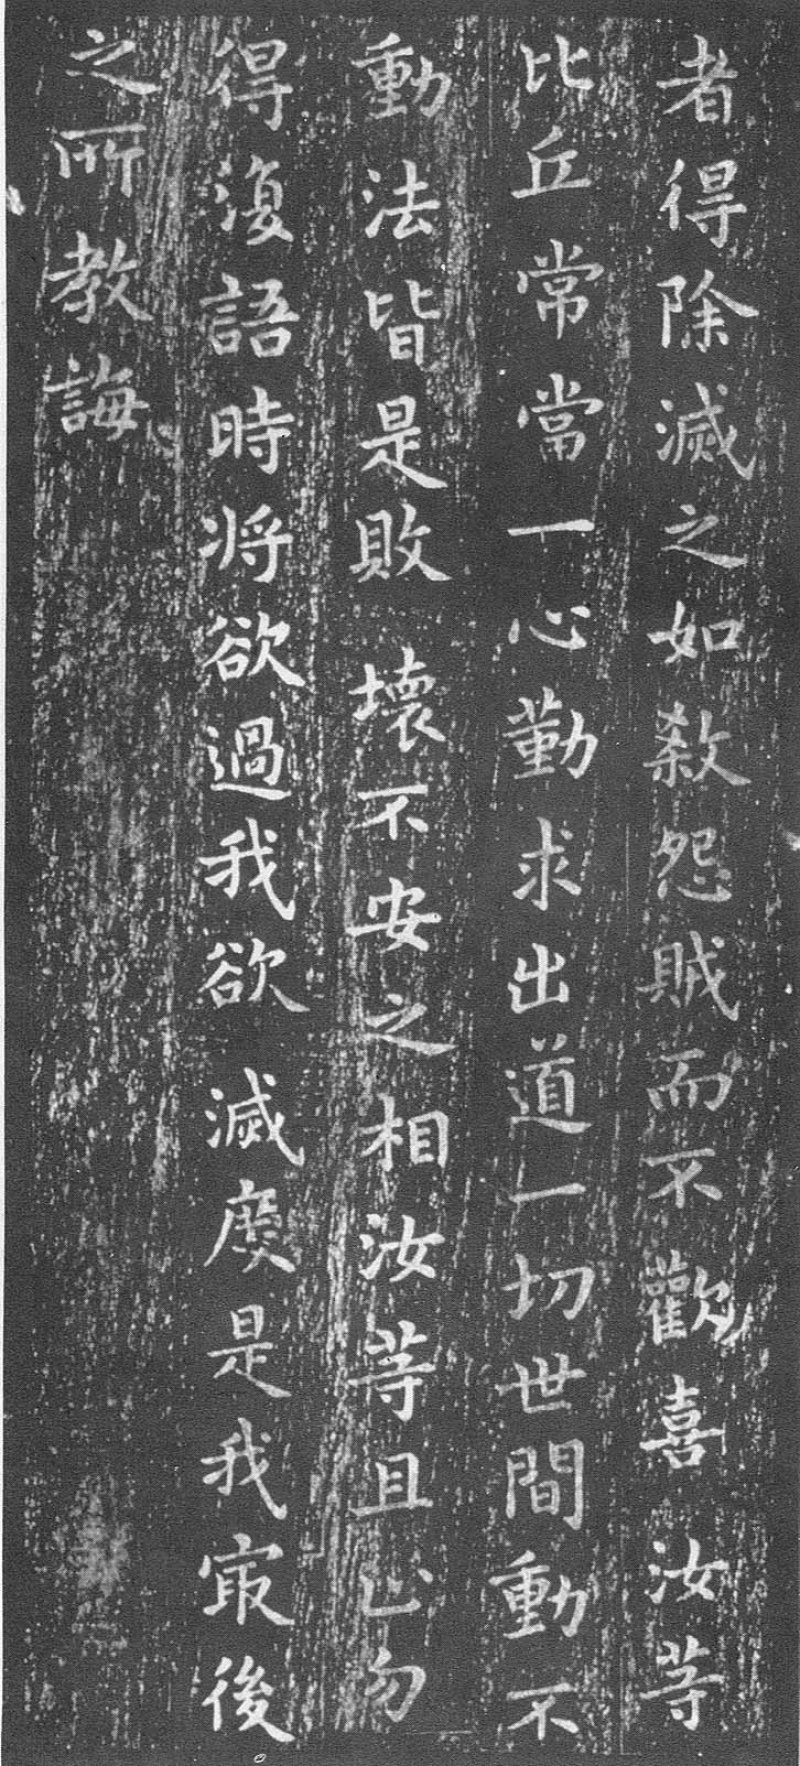 者得除滅之如殺怨賊而不歡喜汝等
比丘常當一心勤求出道一切世間動不
動法皆是敗壞不安之相汝等且止勿
得復語時將欲過我欲滅度是我冣後
之所教誨